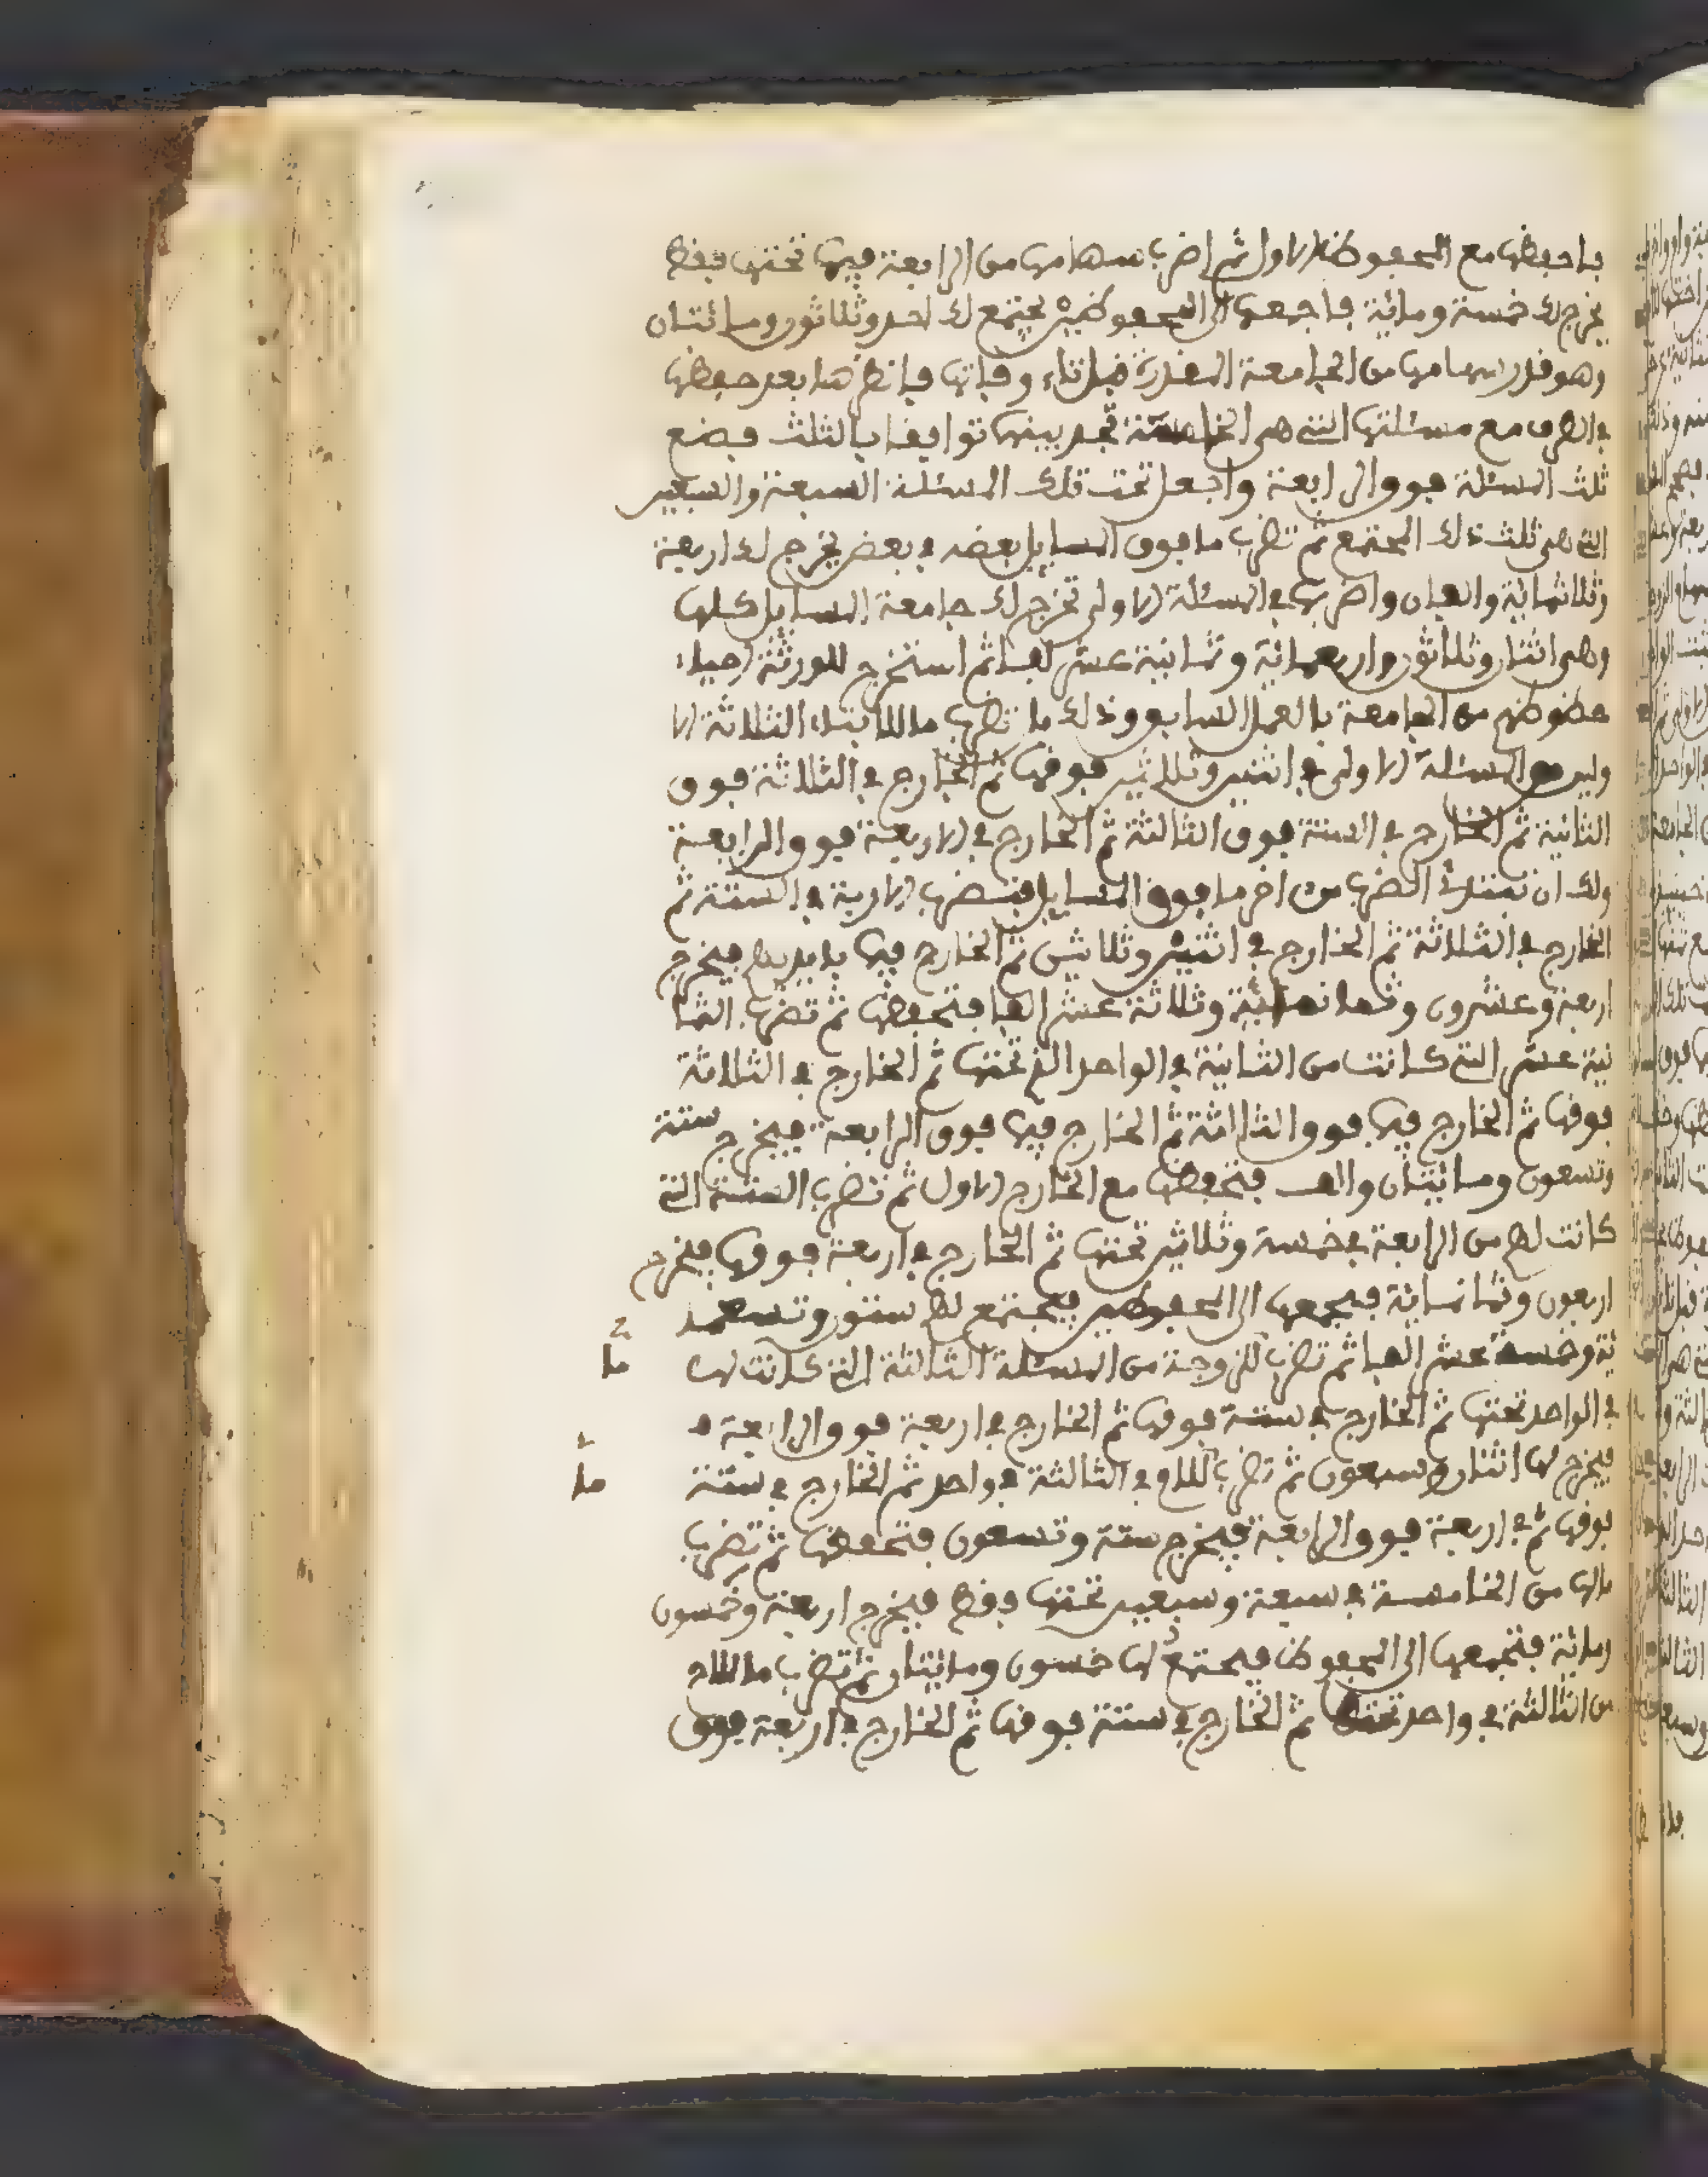 فاحفظها مع المحفوظ الاول ثم اضرب سهامها من الرابعة فيما تحتها فقط
يخرج لك خمسة ومائة فاجمعها الى المحفوظين يجتمع لك احد وثلاثون ومائتان
وهو قدر سهامها من الجامعة المقدرة قبل وفاتها فانظر هذا بعد حفظها
في الطرف مع مسئلتها التي هي الخامسة تجد بينهما توافقا بالثلث فضع
ثلث المسئلة فوق الرابعة واجعل تحت تلك المسئلة السبعة والسبعين
التي هي ثلث ذلك المجتمع ثم تضرب ما فوق المسايل بعضه في بعض يخرج لك اربعة
وثلاثمائة والفان واضربها في المسئلة الاولى تخرج لك جامعة المسايل كلها
وهي اثنان وثلاثون واربعمائة وثمانية عشر الفا ثم استخرج للورثة الاحياء
حظوظهم من الجامعة بالعمل السابق وذلك ما تضرب ما للابناء الثلاثة الا
ولين من المسئلة الاولى في اثنين وثلاثين فوقها ثم الخارج في الثلاثة فوق
الثانية ثم الخارج في الستة فوق الثالثة ثم الخارج في الاربعة فوق الرابعة
ولك ان تبتدئ الضرب من اخر ما فوق المسايل فتضرب الاربعة في الستة ثم
الخارج في الثلاثة ثم الخارج في اثنين وثلاثين ثم الخارج فيما بايديهم فيخرج
اربعة وعشرون وثمانمائة وثلاثة عشر الفا فتحفظها ثم تضرب الثما
نية عشر التي كانت من الثانية في الواحد الذي تحتها ثم الخارج في الثلاثة
فوقها ثم الخارج فيما فوق الثالثة ثم الخارج فيما فوق الرابعة فيخرج ستة
وتسعون ومائتان والف فتحفظها مع الخارج الاول ثم تضرب الستة التي
كانت لهم من الرابعة في خمسة وثلاثين تحتها ثم الخارج في اربعة فوقها فيخرج
اربعون وثمانمائة فتجمعها الى المحفوظين فيجتمع لهم ستون وتسعمـ
ـئة وخمسة عشر الفا ثم تضرب للزوجة من المسئلة الثالثة التي كانت لها ما
في الواحد تحتها ثم الخارج في ستة فوقها ثم الخارج في اربعة فوق الرابعة
فيخرج لها اثنان وسبعون ثم تضرب للام في الثالثة في واحد ثم الخارج في ستة ما
فوقها ثم في اربعة فوق الرابعة فيخرج ستة وتسعون فتحفظها ثم تضرب
مالها من الخامسة في سبعة وسبعين تحتها فقط فيخرج اربعة وخمسون
ومائة فتجمعها الى المحفوظ فيجتمع لها خمسون ومائتان ثم تضرب ما للاخ
من الثالثة في واحد تحتها ثم الخارج في ستة فوقها ثم الخارج في اربعة فوق